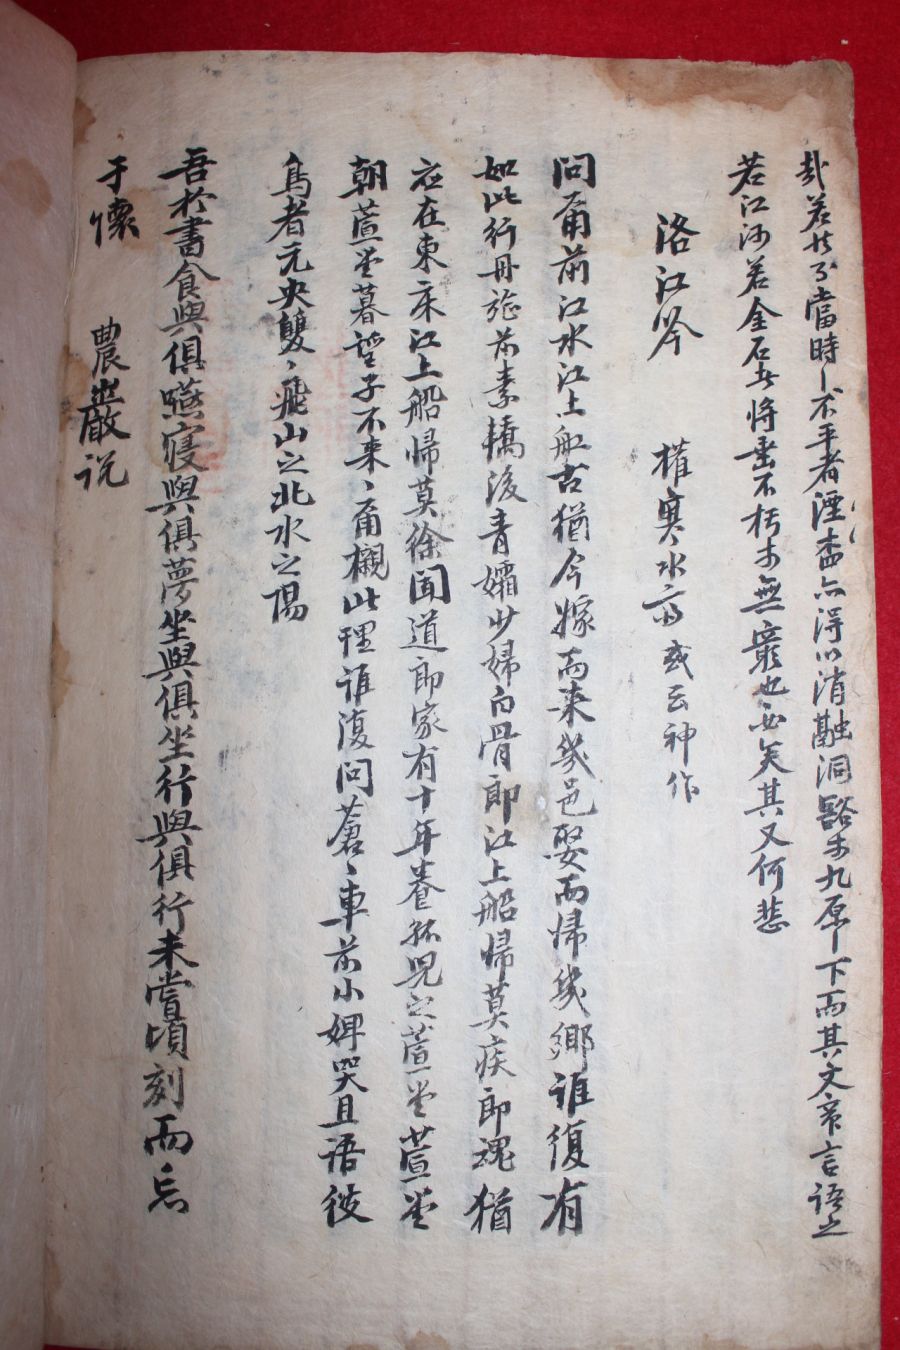 哉若其當時之不平者湮盡亦得以消融洞豁於九原之下而其文章言語之
若江河若金石者將垂不朽於無窮也必矣其又何悲
洛江吟 權寒水齋 或云神作
問爾前江水江上船古猶今嫁而来幾邑娶而帰幾鄉誰復有
如此行丹旌前素轎後青孀少婦白骨郎江上船帰莫疾郎魂猶
在在東床江上船帰莫徐聞道郎家有十年養孤児之萱堂萱堂
朝萱堂暮望子不来、爾櫬此理誰復問蒼、車前小婢哭且语彼
鳥者元央雙、飛山之北水之陽
吾於書食與俱嚥寝與俱夢坐與俱坐行與俱行未嘗頃刻而忘
于懷 農巖说